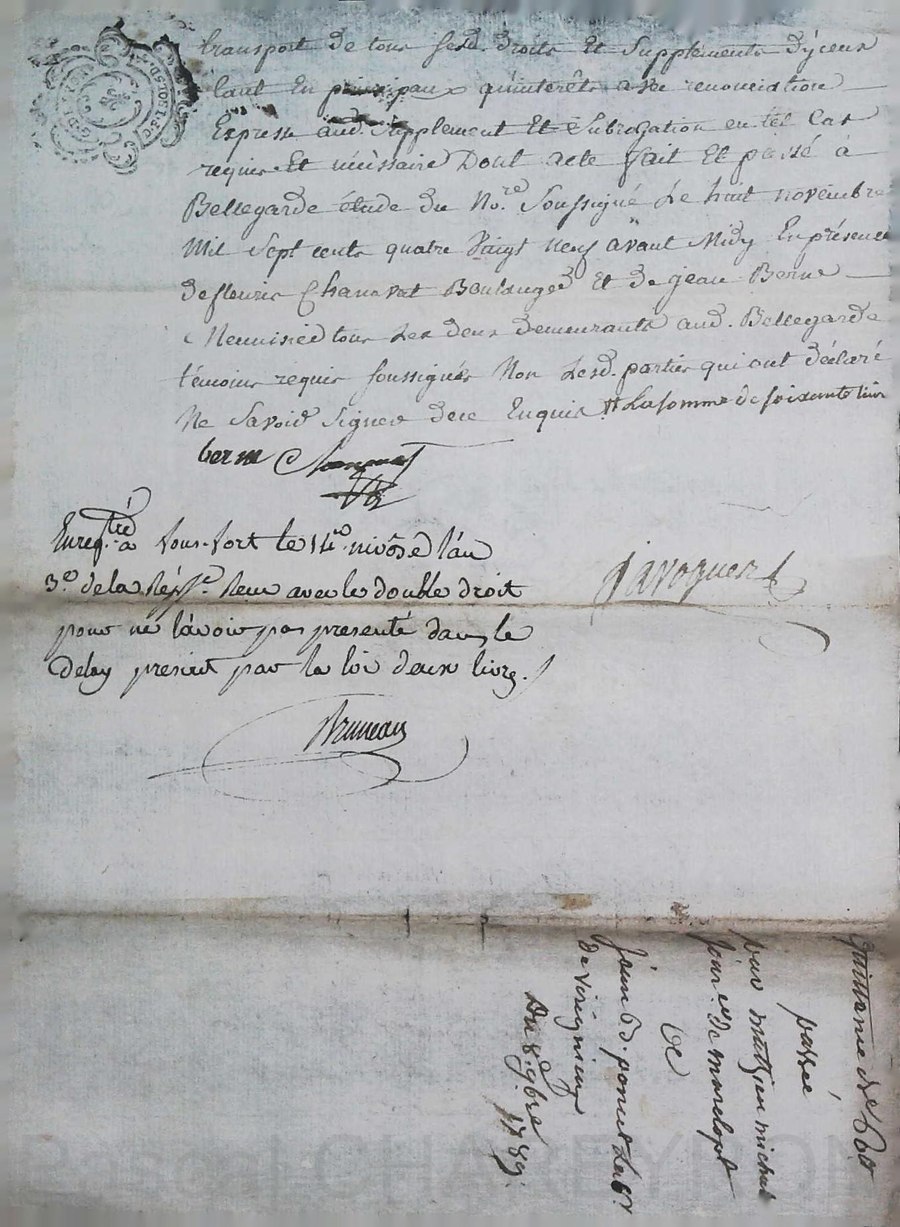 transport de tous sesd. droits Et Supplements d'yceux
tant En principaux qu'interêts avec renonciation
Expresse aud. Supplement Et Subrogation en tel Cas
requise Et nécèssaire Dont acte fait Et passé à
Bellegarde étude du No.re Soussigné Le huit novembre
Mil Sept cents quatre Vaigt neuf avant Midy En présence
de fleurie Chanavat Boulanger Et de jean Berne
Menuisier tous Les deux demeurants aud. Bellegarde
témoins requis soussignés Non Lesd. parties qui ont déclaré
Ne Savoir Signer de ce Enquis # La somme de soixante livres
berne Chanavat
Enreg.tré à Mont-fort le 14. nivôse l'an
3.e de la Rép.e Reçu avec le double droit
pour ne l'avoir pas presenté dans le
délay prescrit par la loi deux livres
Javogues
Bruneau
quittance de 60 #
passé
par mathieu michel
jour.er de marclopt
a
jean B. poncet Lab.r
de virignieux
Du 8. 9.bre 1789.
Pascal CHAREYRON